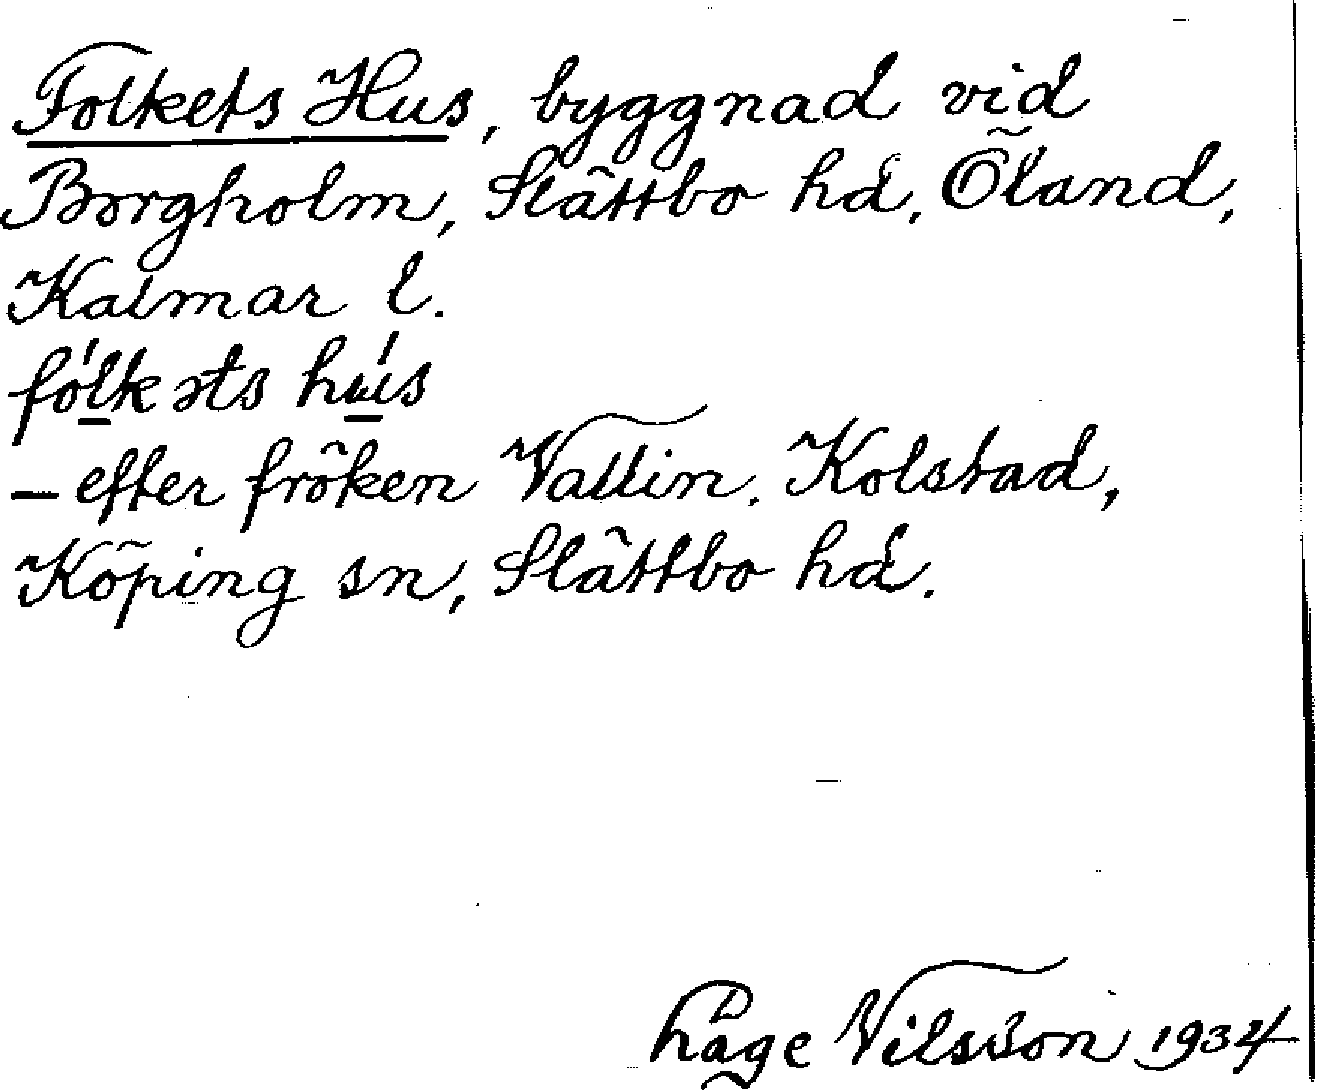 Folkets Hus, byggnad vid
Borgholm, Slättbo hd, Öland,
Kalmar l.
fólkəts hús
– efter fröken Vallin. Kolstad,
Köping sn, Slättbo hd.
Håge Nilsson 1934